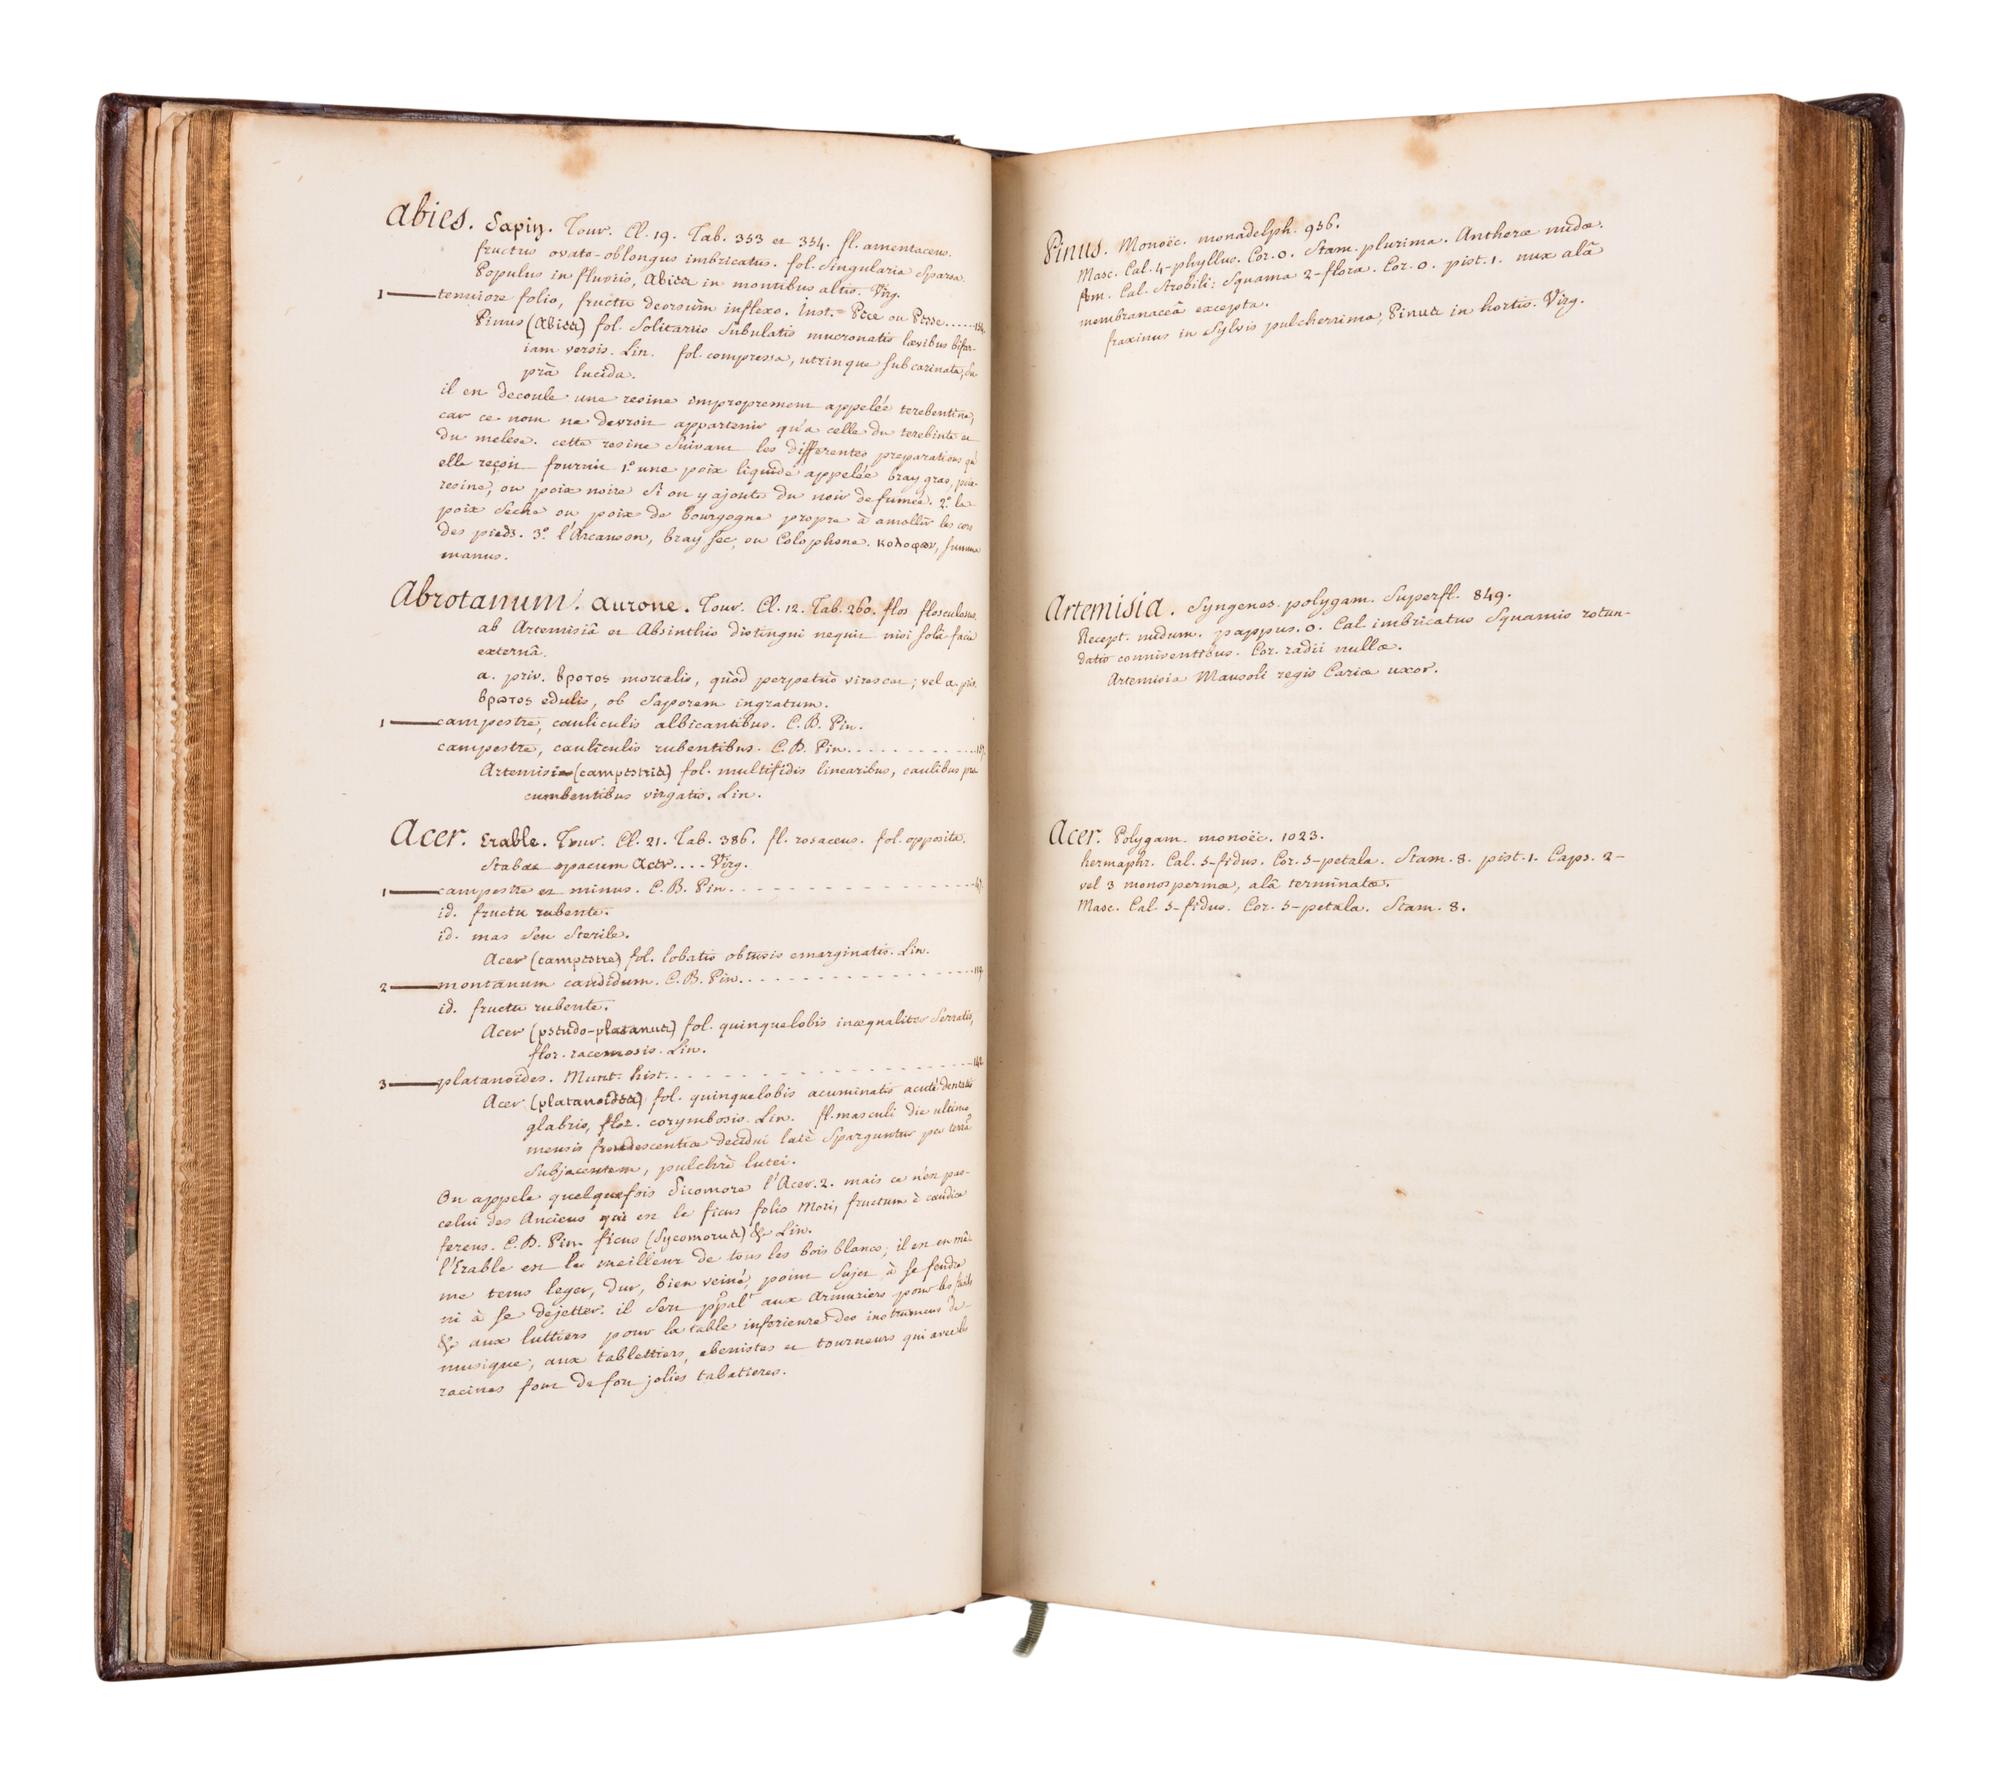 Abies. Sapin. Tour. Cl. 19. Tab. 353 et 354. fl. amentaceus.
fructus ovato-oblongus imbricatus. fol. singularia sparsa.
Populus in fluviis, Abies in montibus altis. Virg.
1 — tenuiore folio, fructu deorsùm inflexo. Inst. Pece ou Pesse
Pinus (Abies) fol. solitariis subulatis mucronatis lævibus bifar-
iam versis. Lin. fol. compressa, utrinque subcarinata, su
prà lucida.
il en decoule une resine improprement appelée terebentine,
car ce nom ne devroit appartenir qu'a celle du terebinte et
du melese. cette resine suivant les differentes preparations qu'
elle reçoit fournit 1º une poix liquide appelée bray gras, poix-
resine, ou poix noire si on y ajoute du noir de fumée. 2º la
poix seche ou poix de Bourgogne propre à amollir les cors
des pieds. 3º l'Arcanson, bray sec, ou Colophone. κολοφων, summa
manus.
Abrotanum. Aurone. Tour. Cl. 12. Tab. 260. flos flosculosus.
ab Artemisiâ et Absinthio distingui nequit nisi solâ facie
externâ.
a. priv. βροτος mortalis, quòd perpetuò virescat; vel a. priv.
βρωτος edulis, ob saporem ingratum.
1 — campestre, cauliculis albicantibus. C. B. Pin.
campestre, cauliculis rubentibus. C. B. Pin.
Artemisia (campestris) fol. multifidis linearibus, caulibus pro
cumbentibus virgatis. Lin.
Acer. Erable. Tour. Cl. 21. Tab. 386. fl. rosaceus. fol. opposita.
Stabat opacum Acer.... Virg.
1 — campestre et minus. C. B. Pin.
id. fructu rubente.
id. mas seu sterile.
Acer (campestre) fol. lobatis obtusis emarginatis. Lin.
2 — montanum candidum. C. B. Pin.
id. fructu rubente.
Acer (pseudo-platanus) fol. quinquelobis inæqualiter serratis,
flor. racemosis. Lin.
3 — platanoides. Munt. hist. 142
Acer (platanoides) fol. quinquelobis acuminatis acutè dentatis
glabris, flor. corymbosis. Lin. fl. masculi die ultimo
mensis frondescentiæ decidui latè sparguntur per terrã
subjacentem, pulchrè lutei.
On appele quelquefois Sicomore l'Acer. 2. mais ce n'est pas
celui des Anciens qui est le ficus folio Mori, fructum è caudice
ferens. C. B. Pin. ficus (Sycomorus) &c Lin.
l'Erable est le meilleur de tous les bois blancs; il est en mê-
me tems leger, dur, bien veiné, point sujet à se fendre
ni à se dejetter. il sert ppalt aux Armuriers pour les fusils
& aux luttiers pour la table inferieure des instrumens de
musique, aux tablettiers, ebenistes et tourneurs qui avec les
racines font de fort jolies tabatieres.
Pinus. Monoëc. monadelph. 956.
Masc. Cal. 4-phyllus. Cor. 0. Stam. plurima. Antheræ nudæ.
fem. Cal. Strobili: Squama 2-flora. Cor. 0. pist. 1. nux alâ
membranaceâ excepta.
fraxinus in sylvis pulcherrima, Pinus in hortis. Virg.
Artemisia. Syngenes. polygam. superfl. 849.
Recept. nudum. pappus. 0. Cal. imbricatus squamis rotun-
datis conniventibus. Cor. radii nullæ.
Artemisia Mausoli regis Cariæ uxor.
Acer. Polygam. monoëc. 1023.
hermaphr. Cal. 5-fidus. Cor. 5-petala. Stam. 8. pist. 1. Caps. 2-
vel 3 monospermæ, alâ terminatæ.
Masc. Cal. 5-fidus. Cor. 5-petala. Stam. 8.